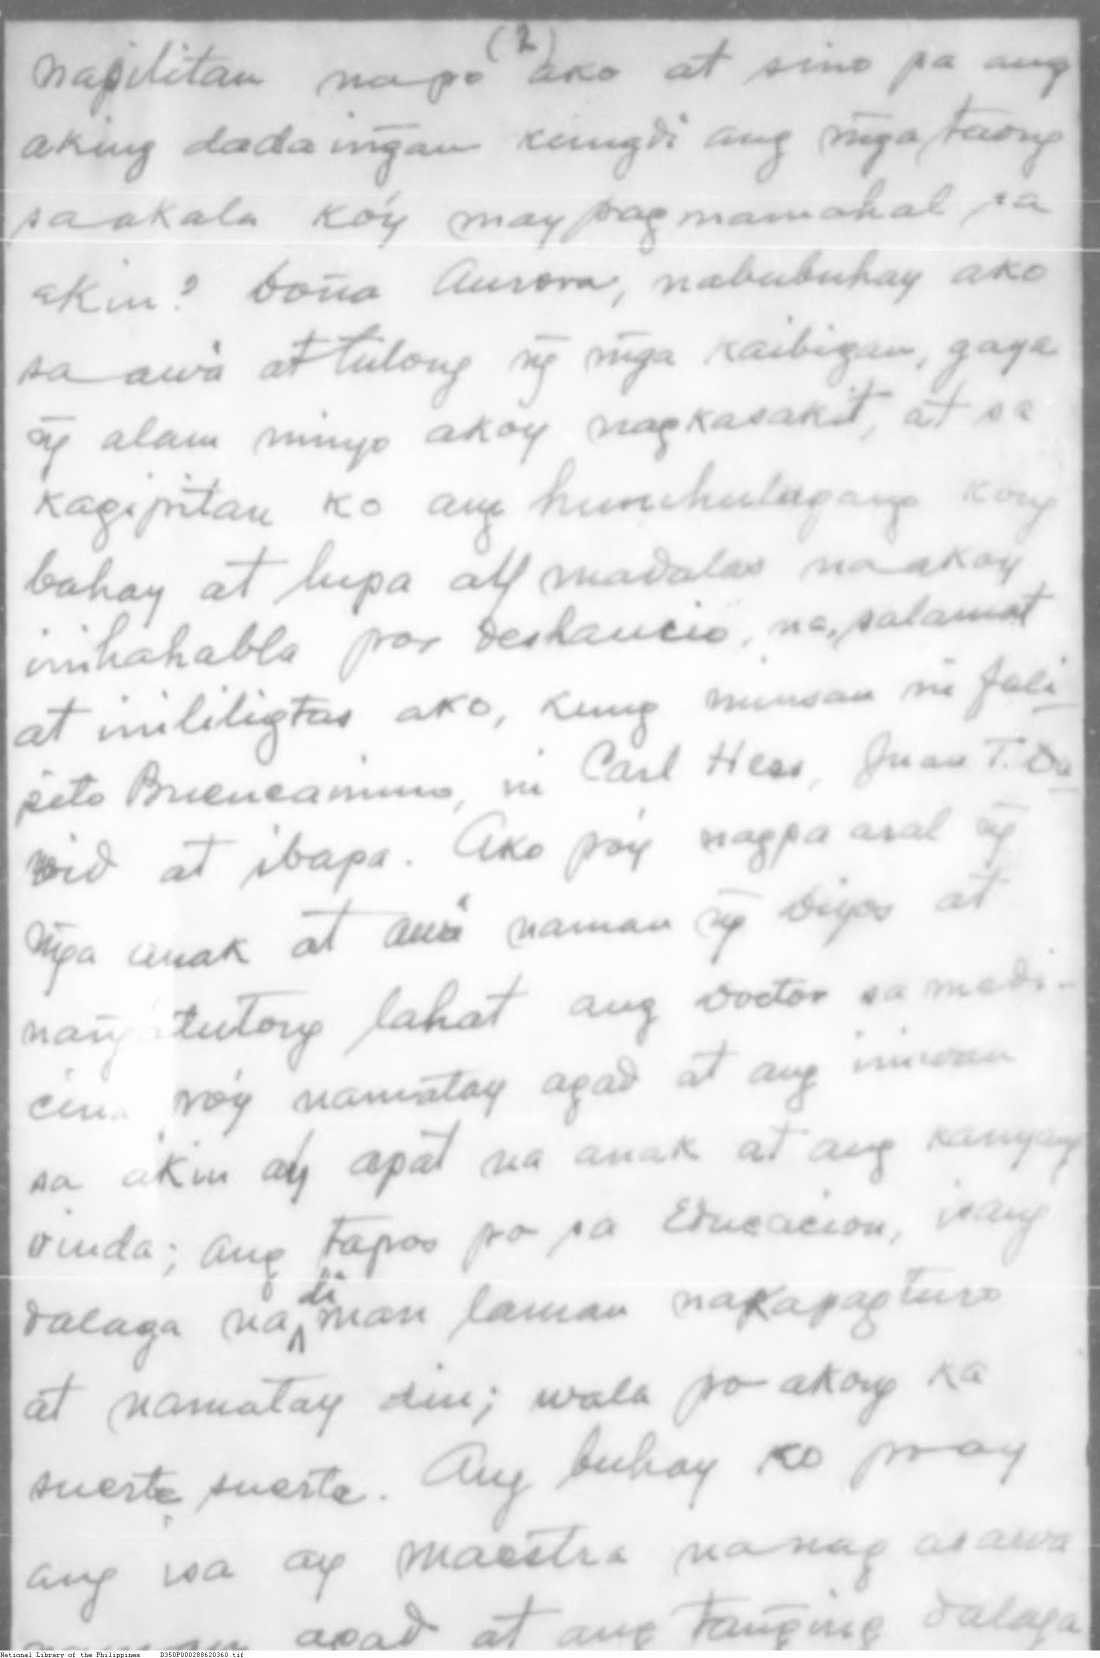 (2)
napilitan na po ako at sino pa ang
aking dadaingan kungdi ang m̃ga taong
sa akala ko'y may pagmamahal sa
akin? Doña Aurora, nabubuhay ako
sa awà at tulong ñg m̃ga kaibigan, gaya
ñg alam ninyo akoy nagkasakit, at sa
kagipitan ko ang hinuhulugang kong
bahay at lupa ay madalas na akoy
inihahabla por deshaucio, na, salamat
at inililigtas ako, kung minsan ni Feli-
peto Buencamino, ni Carl Hess, Juan T. Da
vid at ibapa. Ako po'y nagpa aral ñg
m̃ga anak at awà naman ñg Diyos at
lahat ang doctor sa medi-
cina po'y namatay agad at ang iniwan
sa akin ay apat na anak at ang kanyang
viuda; ang tapos po sa Educacion, isang
dalaga na di man laman nakapagturo
at namatay din; wala po akong ka
suerte suerte. Ang buhay ko po ay
ang isa ay maestra na nag asawa
naman agad at ang tanging dalaga
National Library of the Philippines D350P000288620360.tif